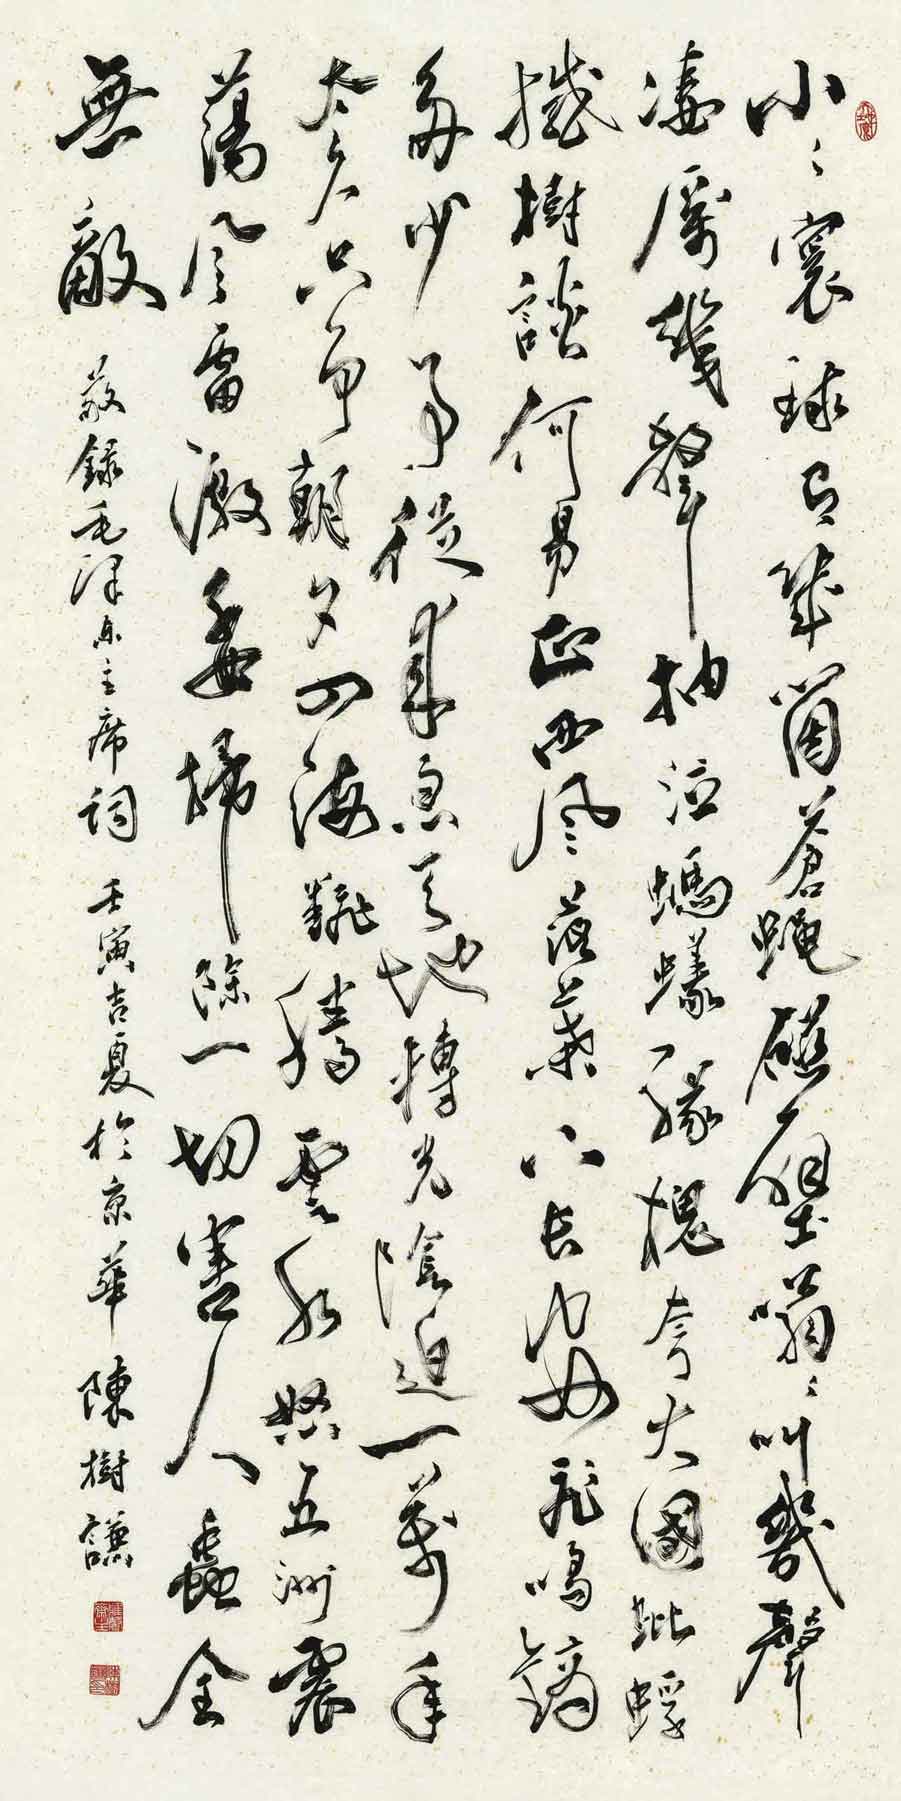 小〻寰球有幾箇蒼蠅碰壁嗡〻叫幾聲
凄厲幾聲抽泣螞蟻緣槐夸大國蚍蜉
撼樹談何易正西風落葉下長安飛鳴鏑
多少事從來急天地轉光陰迫一萬年
太久只争朝夕四海翻騰雲水怒五洲震
蕩風雷激要掃除一切害人蟲全
無敵 敬録毛澤東主席詞 壬寅吉夏於京華 陳樹謙